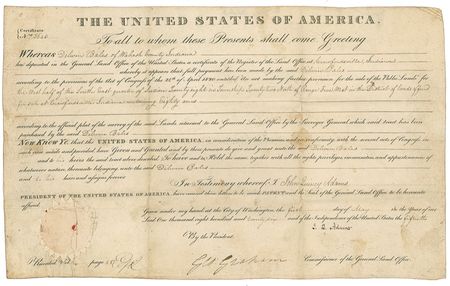 THE UNITED STATES OF AMERICA.
Certificate
To all to whom these Presents shall come, Greeting
WHEREAS Dilwin Bales of Wabash County Indiana
has deposited in the General Land Office of the United States, a certificate of the Register of the Land Office at Crawfordsville Indiana
whereby it appears that full payment has been made by the said Dilwin Bales
according to the provisions of the Act of Congress of the 24th of April 1820 entitled An act making further provision for the sale of the Public Lands for
the West half of the South East quarter of Section Twenty eight in Township Twenty two North of Range Four West in the District of lands offered
for sale at Crawfordsville Indiana containing Eighty acres
according to the official plat of the survey of the said Lands returned to the General Land Office by the Surveyor General which said tract has been
purchased by the said Dilwin Bales
NOW KNOW YE, that the UNITED STATES OF AMERICA, in consideration of the Premises and in conformity with the several acts of Congress in
such case made and provided Have Given and Granted and by these presents do give and grant unto the said Dilwin Bales
and to his heirs the said tract above described To have and to Hold the same together with all the rights privileges immunities and appurtenances of
whatsoever nature, thereunto belonging unto the said Dilwin Bales
and to his heirs and assigns forever
In Testimony whereof I John Quincy Adams
PRESIDENT OF THE UNITED STATES OF AMERICA, have caused these letters to be made PATENT, and the Seal of the General Land Office to be hereunto
affixed.
Given under my hand at the City of Washington, the first day of May in the Year of our
Lord One thousand eight hundred and and of the Independence of the United States the
J. Q. Adams
By the President
Geo Graham Commissioner of the General Land Office.
Recorded Vol page